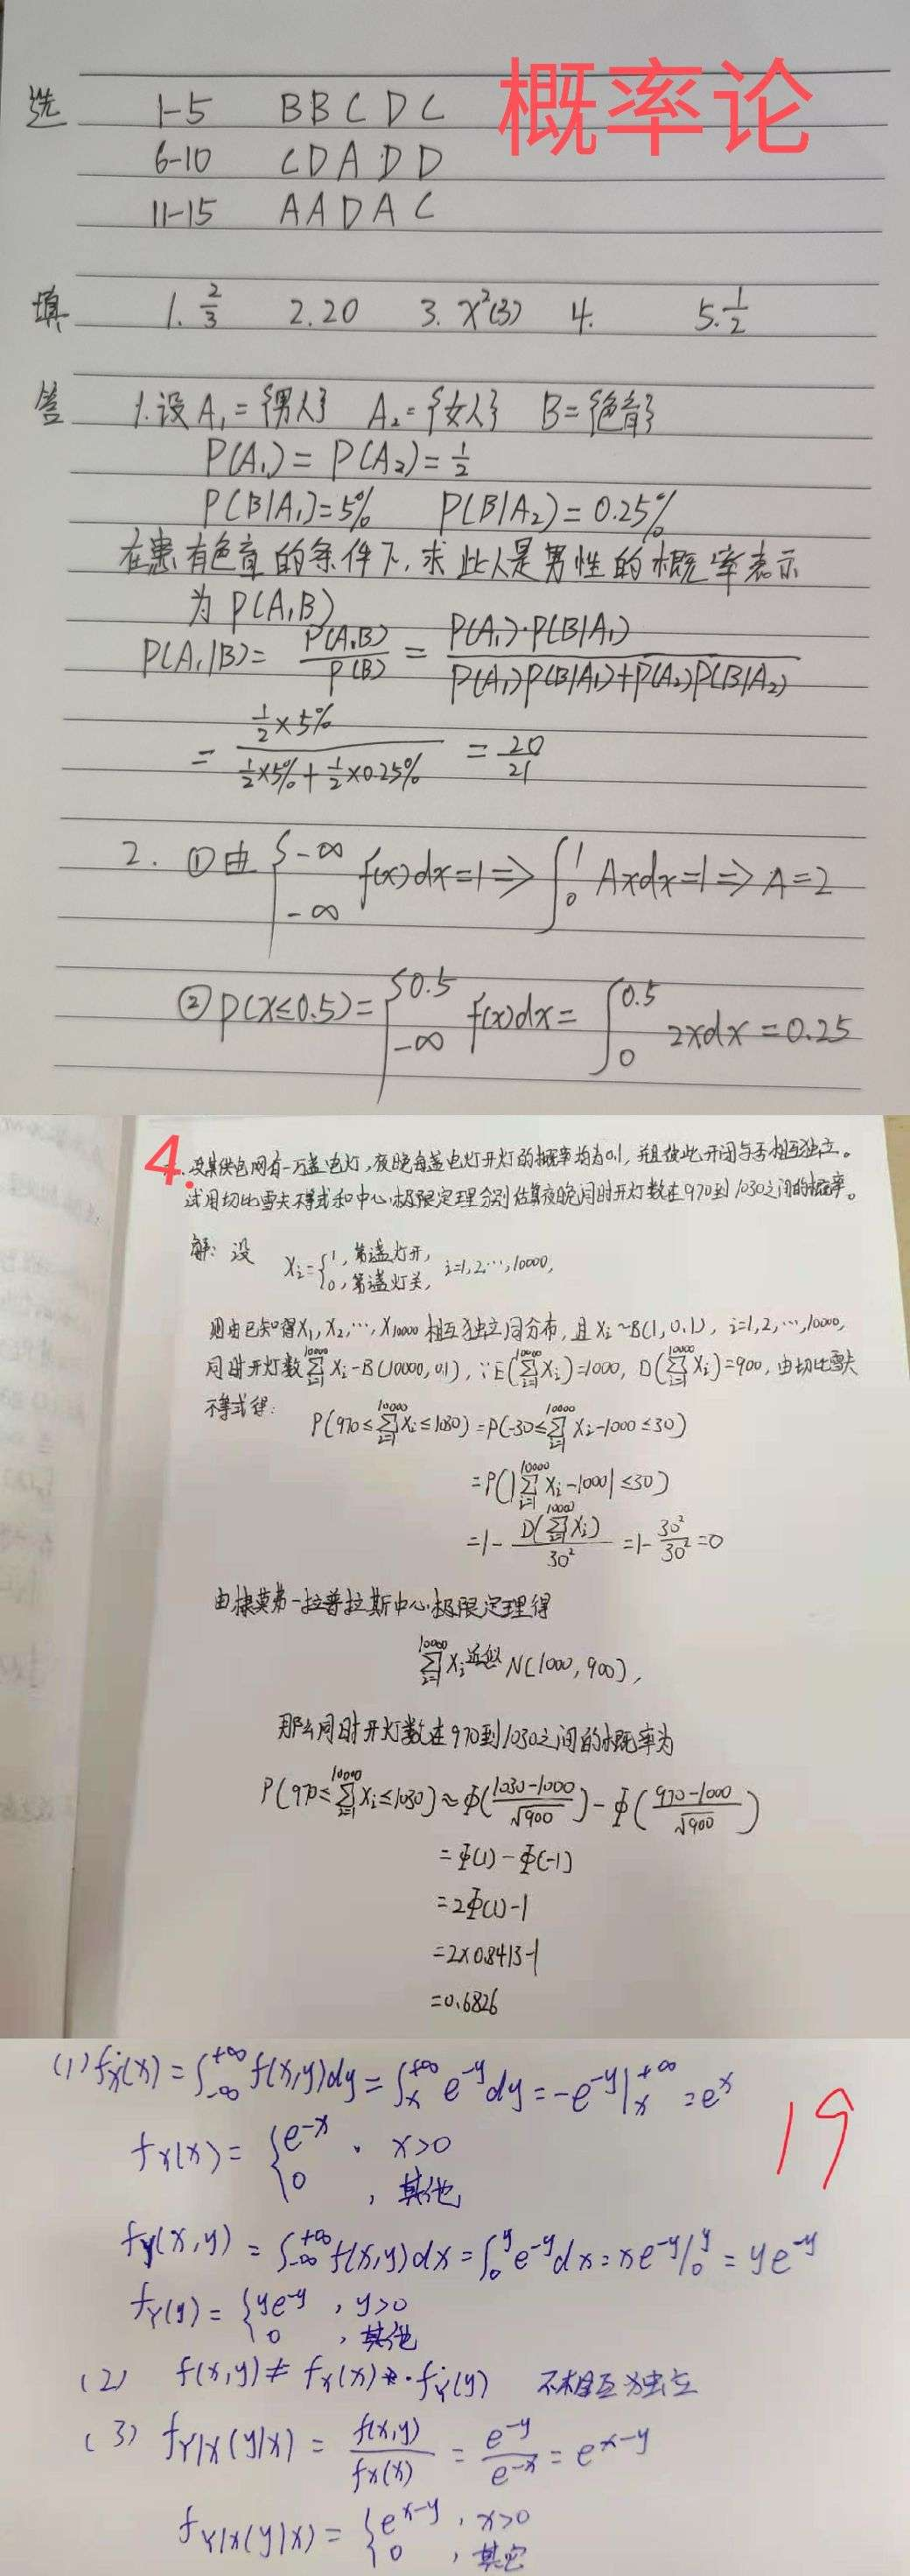 概率论
选 1-5 BBCDC
6-10 CDADD
11-15 AADAC
填 1. 2/3 2. 20 3. χ²(3) 4. 5. 1/2
答 1. 设 A₁={男人} A₂={女人} B={色盲}
P(A₁)=P(A₂)=1/2
P(B|A₁)=5% P(B|A₂)=0.25%
在患有色盲的条件下,求此人是男性的概率表示
为 P(A₁B)
P(A₁|B)= P(A₁B)/P(B) = P(A₁)·P(B|A₁)/P(A₁)P(B|A₁)+P(A₂)P(B|A₂)
= 1/2×5% / 1/2×5%+1/2×0.25% = 20/21
2. ①由 ∫-∞ -∞ f(x)dx=1 ⇒ ∫₀¹ Axdx=1 ⇒ A=2
② P(X≤0.5)= ∫0.5 -∞ f(x)dx= ∫0.5 0 2xdx=0.25
4. 设某供电网有一万盏电灯,夜晚每盏电灯开灯的概率均为0.1,并且彼此开闭与否相互独立。
试用切比雪夫不等式和中心极限定理分别估算夜晚同时开灯数在970到1030之间的概率。
解:设 Xi={1,第i盏灯开, 0,第i盏灯关, i=1,2,…,10000,
则由已知得X₁,X₂,…,X₁₀₀₀₀相互独立同分布,且Xi~B(1,0.1),i=1,2,…,10000,
同时开灯数∑Xi~B(10000,0.1),∵E(∑Xi)=1000,D(∑Xi)=900,由切比雪夫
不等式得:
P(970≤∑Xi≤1030)=P(-30≤∑Xi-1000≤30)
=P(|∑Xi-1000|≤30)
=1- D(∑Xi)/30² =1- 30²/30² =0
由棣莫弗-拉普拉斯中心极限定理得
∑Xi 近似 N(1000,900),
那么同时开灯数在970到1030之间的概率为
P(970≤∑Xi≤1030)≈Φ(1030-1000/√900)-Φ(970-1000/√900)
=Φ(1)-Φ(-1)
=2Φ(1)-1
=2×0.8413-1
=0.6826
19
(1) fx(x)=∫-∞+∞ f(x,y)dy=∫x+∞ e^-y dy=-e^-y|x+∞=e^x
fx(x)={e^-x, x>0
0, 其他
fy(x,y)=∫-∞+∞ f(x,y)dx=∫₀^y e^-y dx=xe^-y|₀^y=ye^-y
fY(y)={ye^-y, y>0
0, 其他
(2) f(x,y)≠fx(x)·fY(y) 不相互独立
(3) fY|X(y|x)= f(x,y)/fx(x) = e^-y/e^-x = e^x-y
fY|X(y|x)={e^x-y, x>0
0, 其它